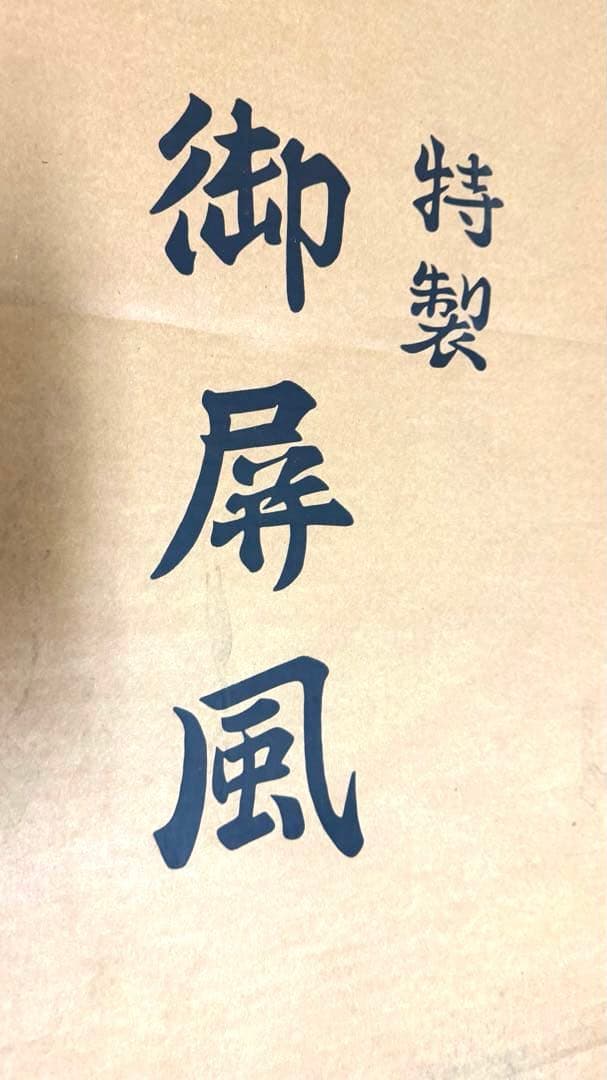 特製
御屏風